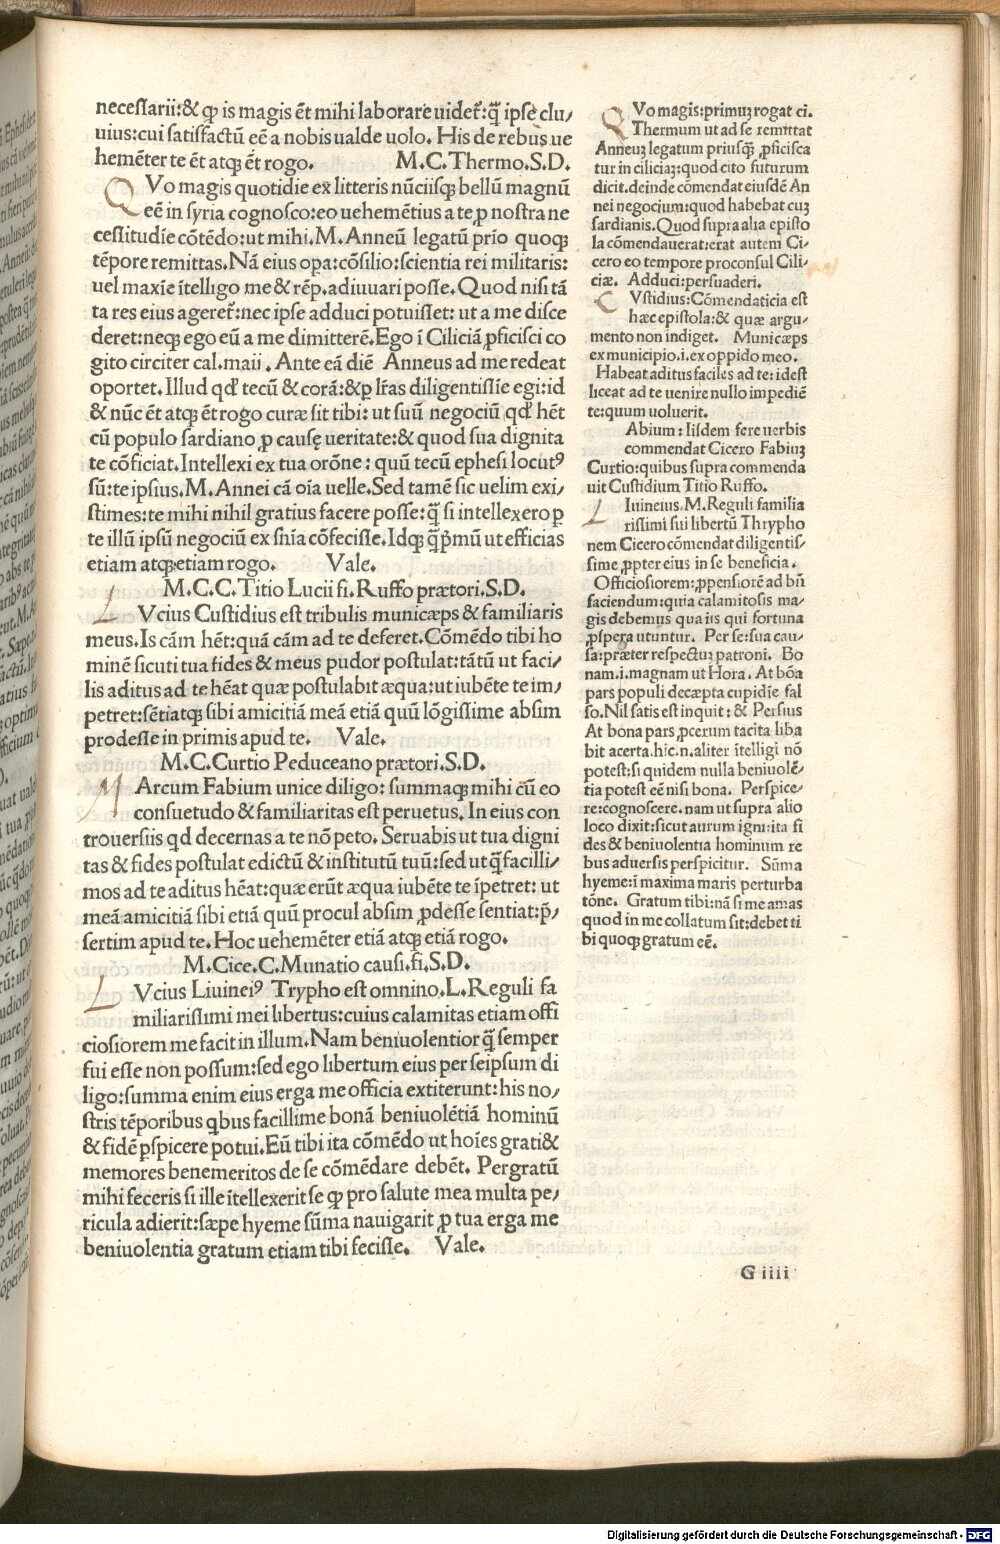 necessarii:& ꝙ is magis ēt mihi laborare uidet̄:q̄ ipse clu/
uius:cui satisfactū eē a nobis ualde uolo. His de rebus ue
hemēter te ēt atqꝫ ēt rogo. M.C.Thermo.S.D.
QVo magis quotidie ex litteris nūciisqꝫ bellū magnū
eē in syria cognosco:eo uehemētius a te ꝑ nostra ne
cessitudīe cōtēdo:ut mihi.M.Anneū legatū prīo quoqꝫ
tēpore remittas.Nā eius opa:cōsilio:scientia rei militaris:
uel maxīe ītelligo me & rēp.adiuuari posse.Quod nisi tā
ta res eius ageret̄:nec ipse adduci potuisset: ut a me disce
deret:neqꝫ ego eū a me dimitterē.Ego ī Ciliciā ꝓficisci co
gito circiter cal.maii. Ante eā diē Anneus ad me redeat
oportet.Illud qđ tecū & corā:&ꝑ lr̄as diligentissīe egi:id
& nūc ēt atqꝫ ēt rogo curæ sit tibi: ut suū negociū qđ hēt
cū populo sardiano ꝓ causę ueritate:& quod sua dignita
te cōficiat.Intellexi ex tua orōne: quū tecū ephesi locutꝰ
sū:te ipsius.M.Annei cā oīa uelle.Sed tamē sic uelim exi/
stimes:te mihi nihil gratius facere posse:q̄ si intellexero ꝑ
te illū ipsū negociū ex sn̄ia cōfecisse.Idqꝫ q̄p̄mū ut efficias
etiam atqꝫ etiam rogo. Vale.
M.C.C.Titio Lucii fi.Ruffo prætori.S.D.
LVcius Custidius est tribulis municæps & familiaris
meus.Is cām hēt:quā cām ad te deferet.Cōmēdo tibi ho
minē sicuti tua fides & meus pudor postulat:tātū ut faci/
lis aditus ad te hēat quæ postulabit æqua:ut iubēte te im/
petret:sētiatqꝫ sibi amicitiā meā etiā quū lōgissime absim
prodesse in primis apud te. Vale.
M.C.Curtio Peduceano prætori.S.D.
MArcum Fabium unice diligo: summaqꝫ mihi cū eo
consuetudo & familiaritas est peruetus. In eius con
trouersiis qđ decernas a te nō peto. Seruabis ut tua digni
tas & fides postulat edictū & institutū tuū:sed ut q̄facilli/
mos ad te aditus hēat:quæ erūt æqua iubēte te īpetret: ut
meā amicitiā sibi etiā quū procul absim ꝓdesse sentiat:p̄/
sertim apud te.Hoc uehemēter etiā atqꝫ etiā rogo.
M.Cice.C.Munatio causi.fi.S.D.
LVcius Liuineiꝰ Trypho est omnino.L.Reguli fa
miliarissimi mei libertus:cuius calamitas etiam offi
ciosiorem me facit in illum.Nam beniuolentior q̄ semper
fui esse non possum:sed ego libertum eius per seipsum di
ligo:summa enim eius erga me officia extiterunt:his no/
stris tēporibus qbus facillime bonā beniuolētiā hominū
& fidē ꝑspicere potui.Eū tibi ita cōmēdo ut hoīes grati&
memores benemeritos de se cōmēdare debēt. Pergratū
mihi feceris si ille ītellexerit se ꝙ pro salute mea multa pe/
ricula adierit:sæpe hyeme sūma nauigarit ꝓ tua erga me
beniuolentia gratum etiam tibi fecisse. Vale.
QVo magis:primuꝫ rogat ci.
Thermum ut ad se remittat
Anneuꝫ legatum priusqꝫ ꝓficisca
tur in ciliciaꝫ:quod cito futurum
dicit.deinde cōmendat eiusdē An
nei negocium:quod habebat cuꝫ
sardianis.Quod supra alia episto
la cōmendauerat:erat autem Ci/
cero eo tempore proconsul Cili/
ciæ. Adduci:persuaderi.
CVstidius:Cōmendaticia est
hæc epistola:& quæ argu/
mento non indiget. Municæps
ex municipio.i.ex oppido meo.
Habeat aditus faciles ad te:idest
liceat ad te uenire nullo impediē
te:quum uoluerit.
Abium: Iisdem fere uerbis
commendat Cicero Fabiuꝫ
Curtio:quibus supra commenda
uit Custidium Titio Ruffo.
LIuineius.M.Reguli familia
rissimi sui libertū Thrypho
nem Cicero cōmendat diligentis/
sime ꝓpter eius in se beneficia.
Officiosiorem:ꝓpensiorē ad bn̄
faciendum:quia calamitosis ma/
gis debemus qua iis qui fortuna
ꝓspera utuntur. Per se:sua cau/
sa:præter respectuꝫ patroni. Bo
nam.i.magnam ut Hora. At bōa
pars populi decæpta cupidīe fal
so.Nil satis est inquit: & Persius
At bona pars ꝓcerum tacita liba
bit acerta.hic.n.aliter ītelligi nō
potest:si quidem nulla beniuolē/
tia potest eē nisi bona. Perspice/
re:cognoscere.nam ut supra alio
loco dixit:sicut aurum igni:ita fi
des & beniuolentia hominum re
bus aduersis perspicitur. Sūma
hyeme:ī maxima maris perturba
tōne. Gratum tibi:nā si me amas
quod in me collatum sit:debet ti
bi quoqꝫ gratum eē.
G iiii
Digitalisierung gefördert durch die Deutsche Forschungsgemeinschaft - DFG